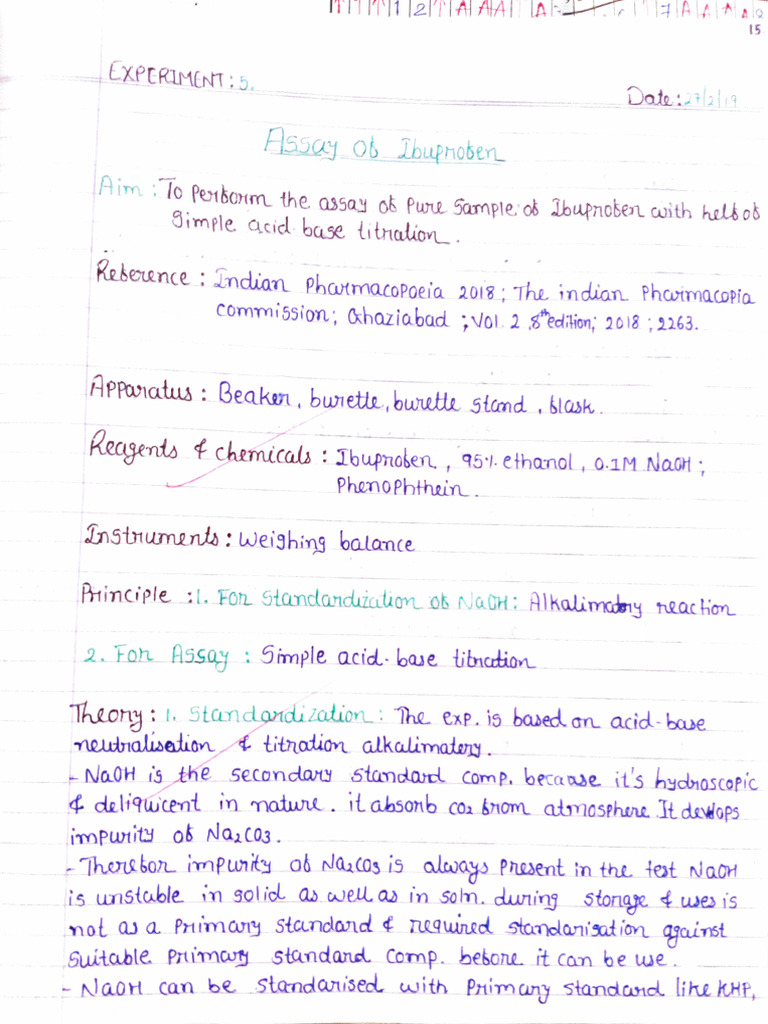 15
EXPERIMENT: 5.
Date: 27/2/19
Assay of Ibuprofen
Aim: To perform the assay of pure sample of Ibuprofen with helf of
simple acid base titration.
Reference: Indian Pharmacopoeia 2018; The indian Pharmacopia
commission; Ghaziabad; Vol. 2 8th edition; 2018; 2263.
Apparatus: Beaker, burette, burette stand, flask.
Reagents & chemicals: Ibuprofen, 95% ethanol, 0.1M NaOH;
Phenophthein.
Instruments: Weighing balance
Principle: 1. For Standardization of NaOH: Alkalimatory reaction
2. For Assay: Simple acid-base titration
Theory: 1. Standardization: The exp. is based on acid-base
neutralisation & titration alkalimatery.
- NaOH is the secondary standard comp. because it's hydroscopic
& deliquicent in nature. it absorb co2 from atmosphere. It develops
impurity of Na2CO3.
- Therefor impurity of Na2CO3 is always present in the test NaOH
is unstable in solid as well as in soln. during storage & uses is
not as a primary standard & required standarisation against
suitable primary standard comp. before it can be use.
- NaOH can be standarised with primary standard like KHP,